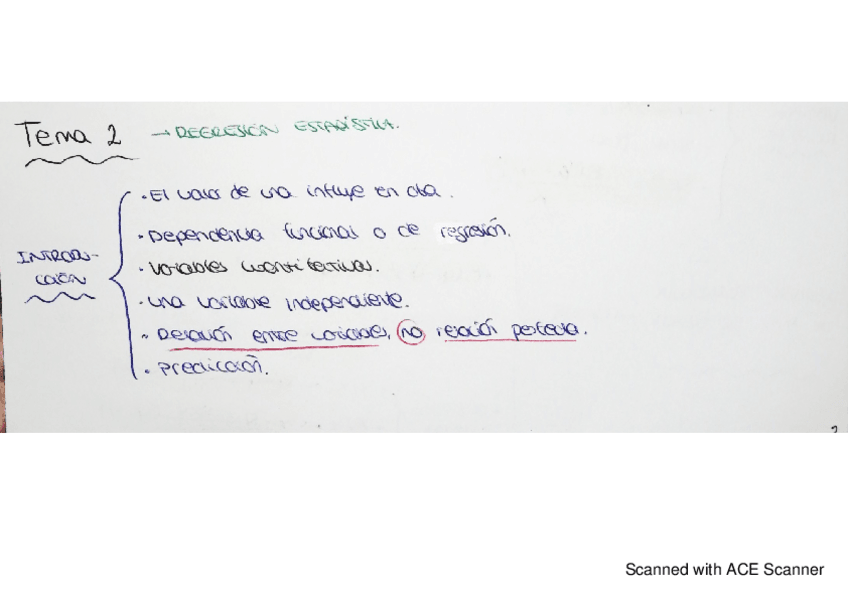 Tema 2 → REGRESIÓN ESTADÍSTICA.
INTRODU-
CCIÓN
· El valor de una influye en otra.
· Dependencia funcional o de regresión.
· Variables cuantitativas.
· Una variable independiente.
· Relación entre variables, no relación perfecta.
· Predicción.
2
Scanned with ACE Scanner